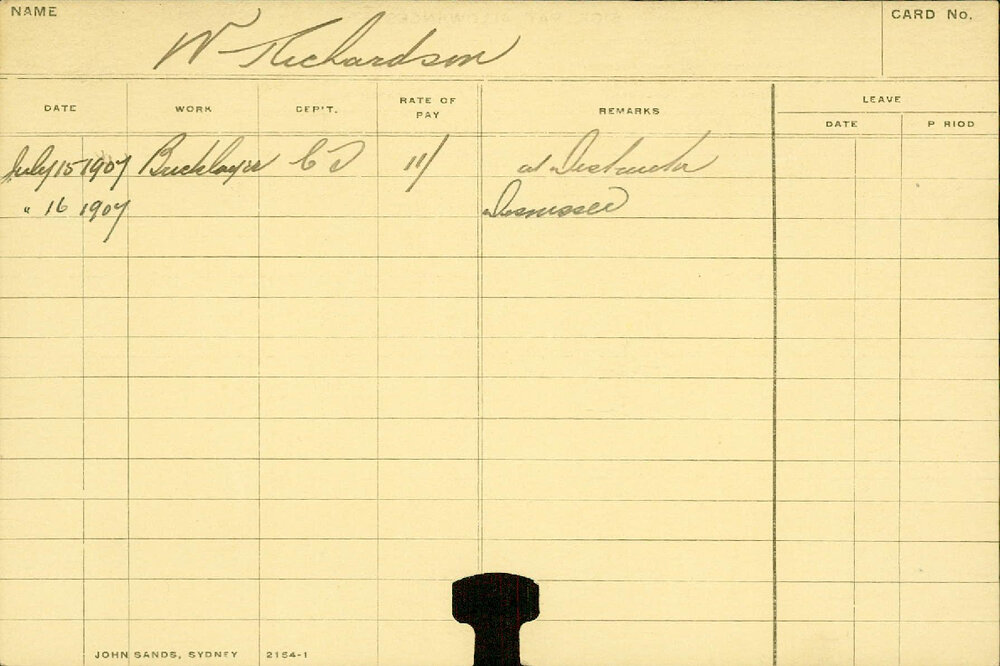 NAME
W Richardson
CARD No.
DATE WORK DEP'T. RATE OF PAY REMARKS LEAVE
DATE P RIOD
July 15 1907 Bricklayer C S 11/ at Destructor
" 16 1907 Dismissed
JOHN SANDS, SYDNEY 2154-1